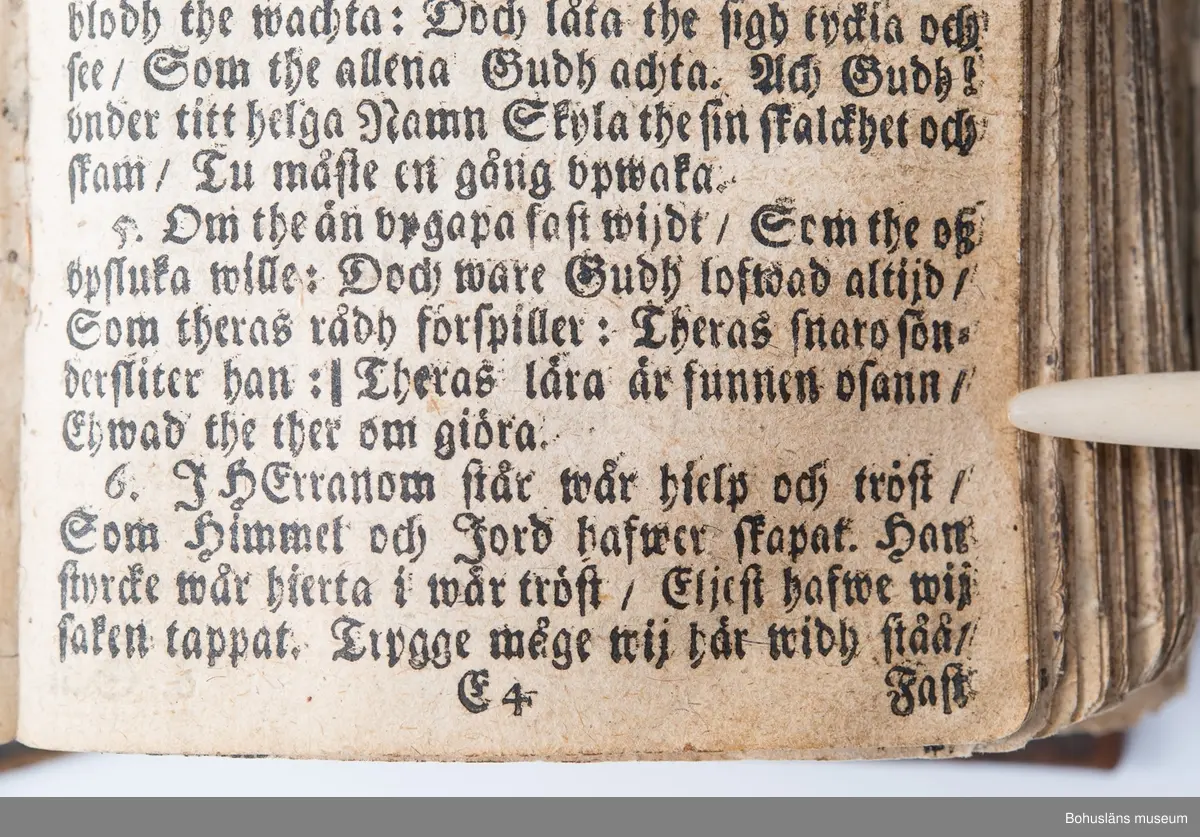 blodh the wachta: Doch låta the sigh tyckia och
see / Som the allena Gudh achta. Ach Gudh!
vnder titt helga Namn Skyla the sin skalckhet och
skam / Tu måste en gång vpwaka.
5. Om the än vpgapa fast wijdt / Som the oß
vpsluka wille: Doch ware Gudh lofwad altijd /
Som theras rådh förspiller: Theras snaro sön-
dersliter han :| Theras lära är funnen osann /
Ehwad the ther om giöra.
6. J HErranom står wår hielp och tröst /
Som Himmel och Jord hafwer skapat. Han
styrcke wår hierta i wår tröst / Eljest hafwe wij
saken tappat. Trygge måge wij här widh ståå /
E 4 Fast
Bohusläns museum